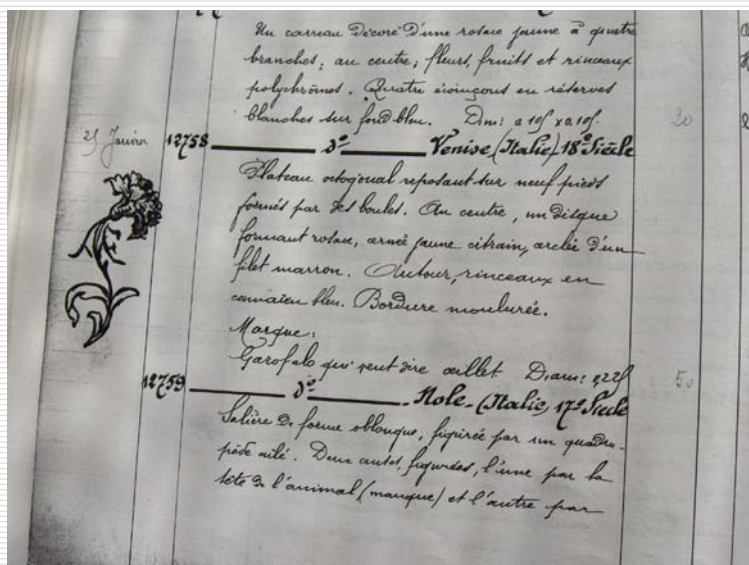 Un carreau décoré d'une rosace jaune à quatre
branches; au centre; fleurs, fruits et rinceaux
polychrômes. Quatre écoinçons en réserves
blanches sur fond bleu. Dim: 0.105 x 0.105.
20
25 Janvier 12758 d° Venise (Italie) 18e Siècle
Plateau octogonal reposant sur neuf pieds
formés par des boules. Au centre, un disque
formant rosace, cerné jaune citrain, cerclé d'un
filet marron. Autour, rinceaux en
camaïeu bleu. Bordure moulurée.
Marque:
Garofalo qui veut dire œillet. Diam: 0,225
50
12759 d° Nole (Italie) 17e Siècle
Salière de forme oblongue, figurée par un quadru-
pède ailé. Deux anses, figurées, l'une par la
tête de l'animal (manque) et l'autre par